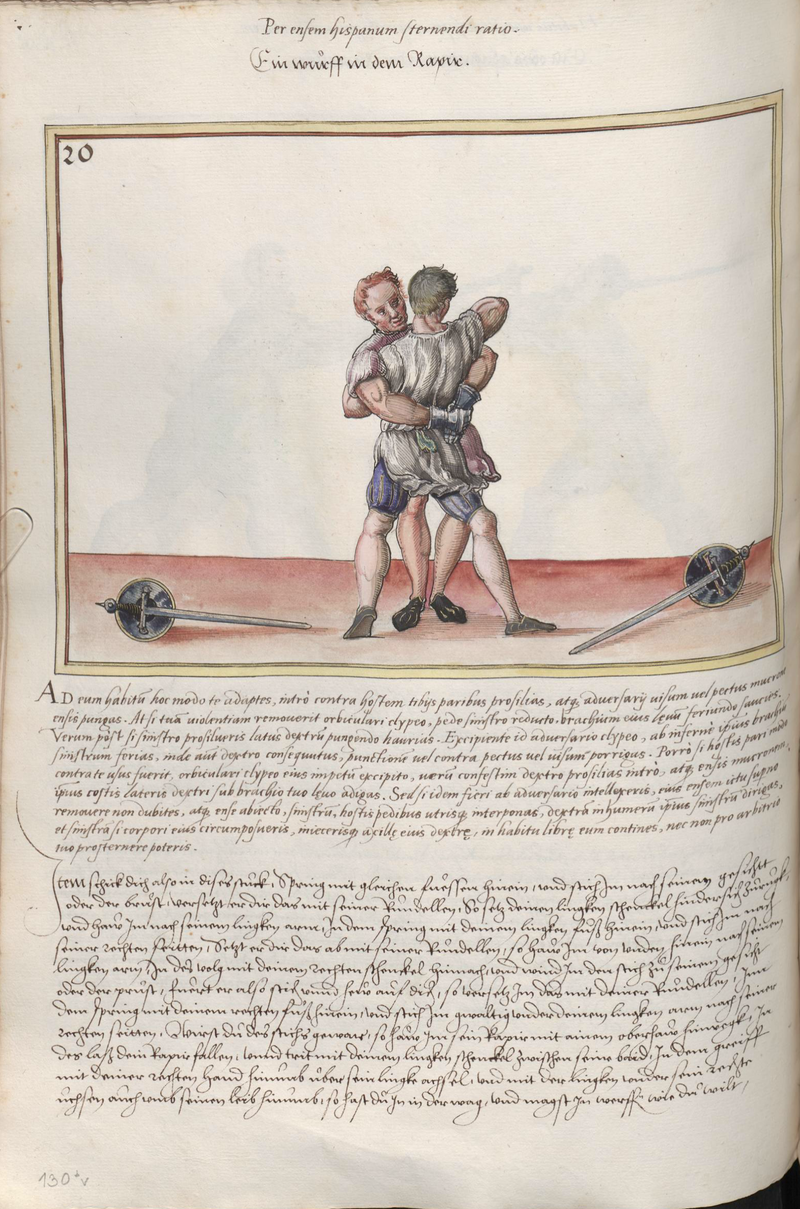 Per ensem hispanum sternendi ratio.
Ein wurff in dem Rapir.
20
AD eum habitũ hoc modo te adaptes, intrò contra hostem tibijs paribus prosilias, atq̃ adversarij visum vel pectus mucrone
ensis pungas. At si tuã violentiam removerit orbiculari clypeo, pede sinistro reducto, brachium eius lęuũ feriundo saucies.
Verum pòst si sinistro prosilueris latus dextrũ pungendo haurias. Excipiente id adversario clypeo, ab infernè ipsius brachiũ
sinistrum ferias, inde aut dextro consequutus, punctione vel contra pectus vel visum porrigas. Porrò si hostis pari modo
contra te usus fuerit, orbiculari clypeo eius impetũ excipito, uerũ confestim dextro prosilias intrò, atq̃ ensis mucronem
ipsius costis lateris dextri sub brachio tuo lęuo adigas. Sed si idem fieri ab adversario intellexeris, eius ensem ictu supno
removere non dubites, atq̃ ense abiecto, sinistrũ, hostis pedibus utrisq̃ interponas, dextrã in humerũ ipsius sinistrũ dirigas,
et sinistrã si corpori eius circumposueris, inieceris q̃ axillę eius dextrę, in habitu librę eum contines, nec non pro arbitrio
tuo prosternere poteris.
Item schick dich also in dises stuck, Spring mit gleichen fuessen hinein, vnd stich Im nach seinem gesicht
oder der brust, versetzt er dir das mit seiner Rundellen, So setz deinen lingken schenckel hindersich zůruck,
vnd haw Im nach seinem lingken arm, In dem spring mit deinem lingken fůß hinein, vnd stich Im nach
seiner rechten seitten, Setzt er dir das ab mit seiner Rundellen, so haw Im von vnden hinein nach seinem
lingken arm, In des volg mit deinem rechten schenckel hinnach, vnd wind Im den stich zů seinem gesicht
oder der prust, fuert er also stich vnnd hew auf dich, so versetz Im das mit deiner Rundellen, In
dem spring mit deinem rechten fůß hinein, vnd stich Im gwaltig vnder deinem lingken arm nach seiner
rechten seitten, Wurst du des stichs gewar, so haw Im sein Rapir mit ainem oberhaw hinweg, In
des laß dein Rapir fallen, vnnd trit mit deinem lingken schenckel zwischen seine baid, In dem greiff
mit deiner rechten hand hinumb uber sein lingke achsel, vnd mit der lingken vnder sein rechte
uchsen auch vmb seinen leib hinumb, so hast du In in der wag, vnd magst In werffen wie du wilt,
130+v